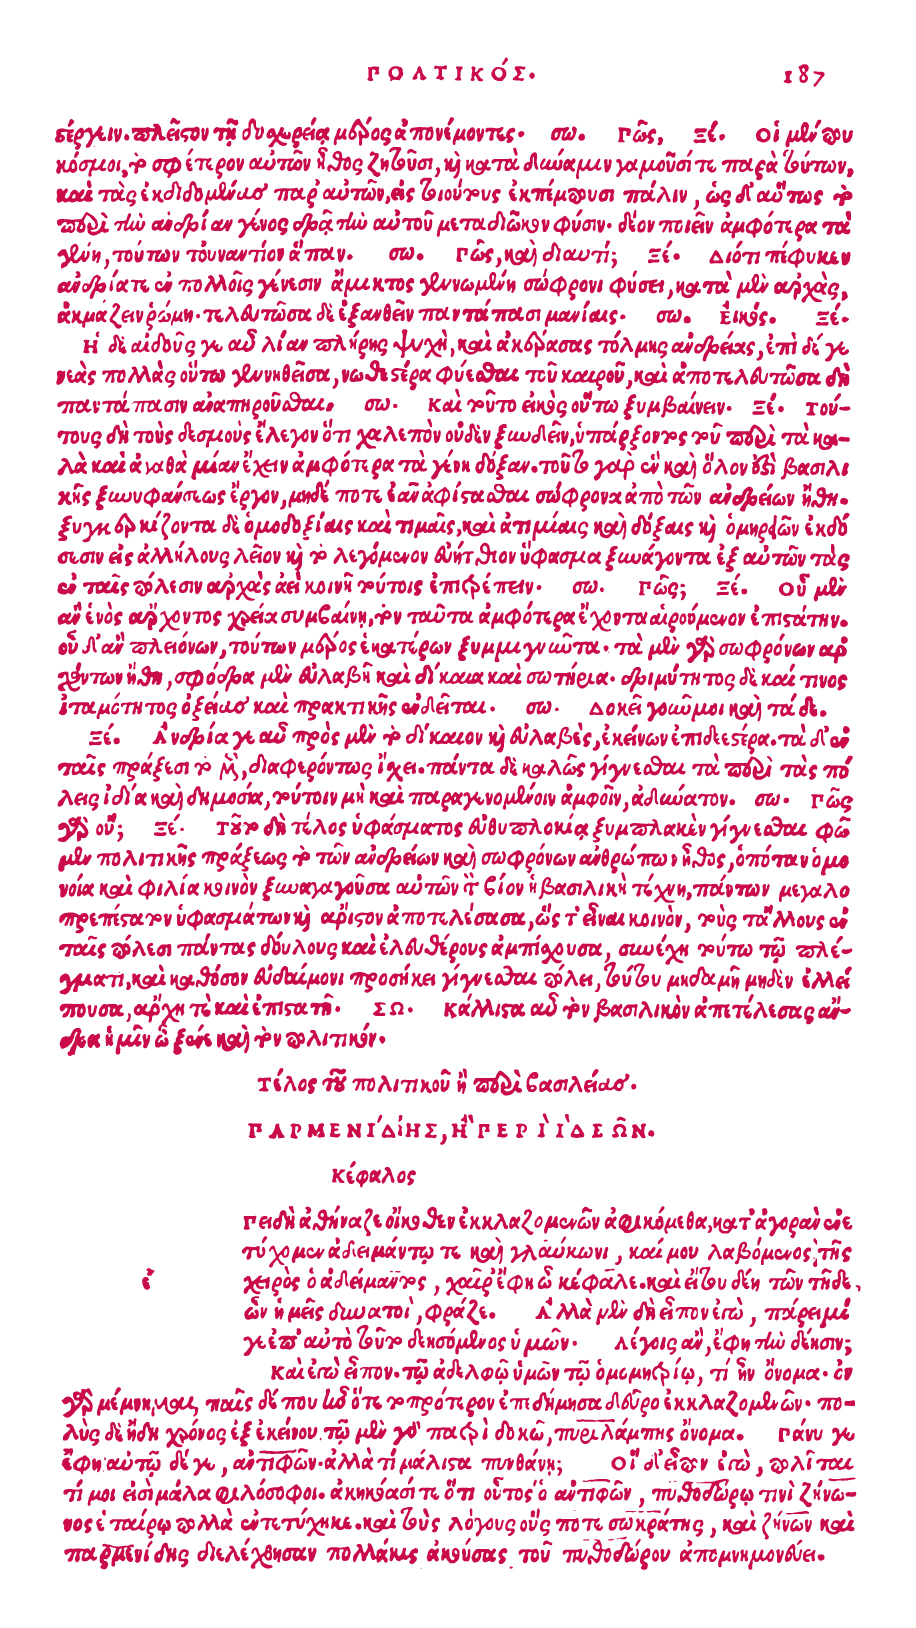 ΠΟΛΤΙΚΌΣ. 187
στέργειν. πλεῖστον τῇ δυσχερείᾳ μέρος ἀπονέμοντες. σω. Πῶς, Ξέ. Οἱ μέν που
κόσμοι, τὸ σφέτερον αὐτῶν ἦθος ζητοῦσι, καὶ κατὰ δύναμιν γαμοῦσί τε παρὰ τούτων,
καὶ τὰς ἐκδιδομένας παρ' αὐτῶν, εἰς τοιούτους ἐκπέμπουσι πάλιν, ὡς δ' αὔτως τὸ
περὶ τὴν ἀνδρίαν γένος δρᾷ τὴν αὐτοῦ μεταδιῶκον φύσιν. δέον ποιεῖν ἀμφότερα τὰ
γένη, τούτων τὀυναντίον ἅπαν. σω. Πῶς, καὶ διατί; Ξέ. Διότι πέφυκεν
ἀνδρία τε ἐν πολλοῖς γένεσιν ἄμικτος γεννωμένη σώφρονι φύσει, κατὰ μὲν ἀρχὰς,
ἀκμάζειν ῥώμῃ. τελευτῶσα δὲ ἐξανθεῖν παντάπασι μανίαις. σω. Εἰκός. Ξέ.
Ἡ δὲ αἰδοῦς γε αὖ λίαν πλήρης ψυχὴ, καὶ ἀκέρασος τόλμης ἀνδρείας, ἐπὶ δέ γε
νεὰς πολλὰς οὕτω γεννηθεῖσα, νωθεστέρα φύεσθαι τοῦ καιροῦ, καὶ ἀποτελευτῶσα δὴ
παντάπασιν ἀναπηροῦσθαι. σω. Καὶ τοῦτο εἰκὸς οὕτω ξυμβαίνειν. Ξέ. Τού-
τους δὴ τοὺς δεσμοὺς ἔλεγον ὅτι χαλεπὸν οὐδὲν ξυνδεῖν, ὑπάρξοντος τοῦ περὶ τὰ κα-
λὰ καὶ ἀγαθὰ μίαν ἔχειν ἀμφότερα τὰ γένη δόξαν. τοῦτο γὰρ ἓν καὶ ὅλον ἐστὶ βασιλι
κῆς ξυνυφάνσεως ἔργον, μηδέ ποτε ἐᾶν ἀφίστασθαι σώφρονα ἀπὸ τῶν ἀνδρείων ἤθη.
ξυγκερκίζοντα δὲ ὁμοδοξίαις καὶ τιμαῖς, καὶ ἀτιμίαις καὶ δόξαις καὶ ὁμηρειῶν ἐκδό
σεσιν εἰς ἀλλήλους λεῖον καὶ τὸ λεγόμενον εὐήτριον ὕφασμα ξυνάγοντα ἐξ αὐτῶν τὰς
ἐν ταῖς πόλεσιν ἀρχὰς ἀεὶ κοινῇ τούτοις ἐπιτρέπειν. σω. Πῶς; Ξέ. Οὗ μὲν
ἂν ἑνὸς ἄρχοντος χρεία συμβαίνῃ, τὸν ταῦτα ἀμφότερα ἔχοντα αἱρούμενον ἐπιστάτην.
οὗ δ' ἂν πλειόνων, τούτων μέρος ἑκατέρων ξυμμιγνῶντα. τὰ μὲν γὰρ σωφρόνων ἀρ
χόντων ἤθη, σφόδρα μὲν εὐλαβῆ καὶ δίκαια καὶ σωτήρια. δριμύτητος δὲ καί τινος
ἰταμότητος ὀξείας καὶ πρακτικῆς ἐνδεῖται. σω. Δοκεῖ γοῦν μοι καὶ τά δε.
Ξέ. Ἀνδρία γε αὖ πρὸς μὲν τὸ δίκαιον καὶ εὐλαβὲς, ἐκείνων ἐπιδεεστέρα. τὰ δ' ἐν
ταῖς πράξεσι τὸ μὲν, διαφερόντως ἴχει. πάντα δὲ καλῶς γίγνεσθαι τὰ περὶ τὰς πό
λεις ἰδίᾳ καὶ δημοσίᾳ, τούτοιν μὴ καὶ παραγενομένοιν ἀμφοῖν, ἀδύνατον. σω. Πῶς
γὰρ οὔ; Ξέ. Τοῦτο δὴ τέλος ὑφάσματος εὐθυπλοκίᾳ ξυμπλακὲν γίγνεσθαι φῶ
μεν πολιτικῆς πράξεως τὸ τῶν ἀνδρείων καὶ σωφρόνων ἀνθρώπων ἦθος, ὁπόταν ὁμο
νοίᾳ καὶ φιλίᾳ κοινὸν ξυναγαγοῦσα αὐτῶν τὸ βίον ἡ βασιλικὴ τέχνη, πάντων μεγαλο
πρεπέστατον ὑφασμάτων καὶ ἄριστον ἀποτελέσασα, ὥς τ' εἶναι κοινὸν, τούς τ' ἄλλους ἐν
ταῖς πόλεσι πάντας δούλους καὶ ἐλευθέρους ἀμπίσχουσα, συνέχῃ τούτῳ τῷ πλέ-
γματι, καὶ καθόσον εὐδαίμονι προσήκει γίγνεσθαι πόλει, τούτου μηδαμῆ μηδὲν ἐλλεί
πουσα, ἄρχῃ τὲ καὶ ἐπιστατῇ. ΣΩ. Κάλλιστα αὖ τὸν βασιλικὸν ἀπετέλεσας ἄν-
δρα ἡμῖν ὦ ξένε καὶ τὸν πολιτικόν.
Τέλος τοῦ πολιτικοῦ ἢ περὶ βασιλείας.
ΠΑΡΜΕΝΊΔΙΗΣ, Ἢ ΠΕΡῚ ἸΔΕΩ͂Ν.
Κέφαλος
ἐ
Πειδὴ ἀθήναζε οἴκοθεν ἐκ κλαζομενῶν ἀφικόμεθα, κατ' ἀγορὰν ἐνε
τύχομεν ἀδειμάντῳ τε καὶ γλαύκωνι, καί μου λαβόμενος, τῆς
χειρὸς ὁ ἀδείμαντος, χαῖρ' ἔφη ὦ κέφαλε. καὶ εἴ του δέῃ τῶν τῇδε,
ὧν ἡμεῖς δυνατοὶ, φράζε. Ἀλλὰ μὲν δὴ εἶπον ἐγὼ, πάρειμί
γε ἐπ' αὐτὸ τοῦτο δεησόμενος ὑμῶν. λέγοις ἂν, ἔφη τὴν δέησιν;
Καὶ ἐγὼ εἶπον. τῷ ἀδελφῷ ὑμῶν τῷ ὁμομητρίῳ, τί ἦν ὄνομα. ὀν
γὰρ μέμνημαι, παῖς δέ που ἦν ὅτε τὸ πρότερον ἐπεδήμησα δεῦρο ἐκ κλαζομενῶν. πο-
λὺς δὲ ἤδη χρόνος ἐξ ἐκείνου. τῷ μὲν γὰρ πατρὶ δοκῶ, πυριλάμπης ὄνομα. Πάνυ γε
ἔφη αὐτῷ δέ γε, ἀντιφῶν. ἀλλὰ τί μάλιστα πυνθάνῃ; Οἵδ' εἶπον ἐγὼ, πολῖται
τί μοι εἰσὶ μάλα φιλόσοφοι. ἀκηκόασί τε ὅτι οὗτος ὁ ἀντιφῶν, πυθοδώρῳ τινὶ ζήνω-
νος ἑταίρῳ πολλὰ ἐντετύχηκε. καὶ τοὺς λόγους οὓς ποτε σωκράτης, καὶ ζήνων καὶ
παρμενίδης διελέχθησαν πολλάκις ἀκούσας τοῦ πυθοδώρου ἀπομνημονεύει.